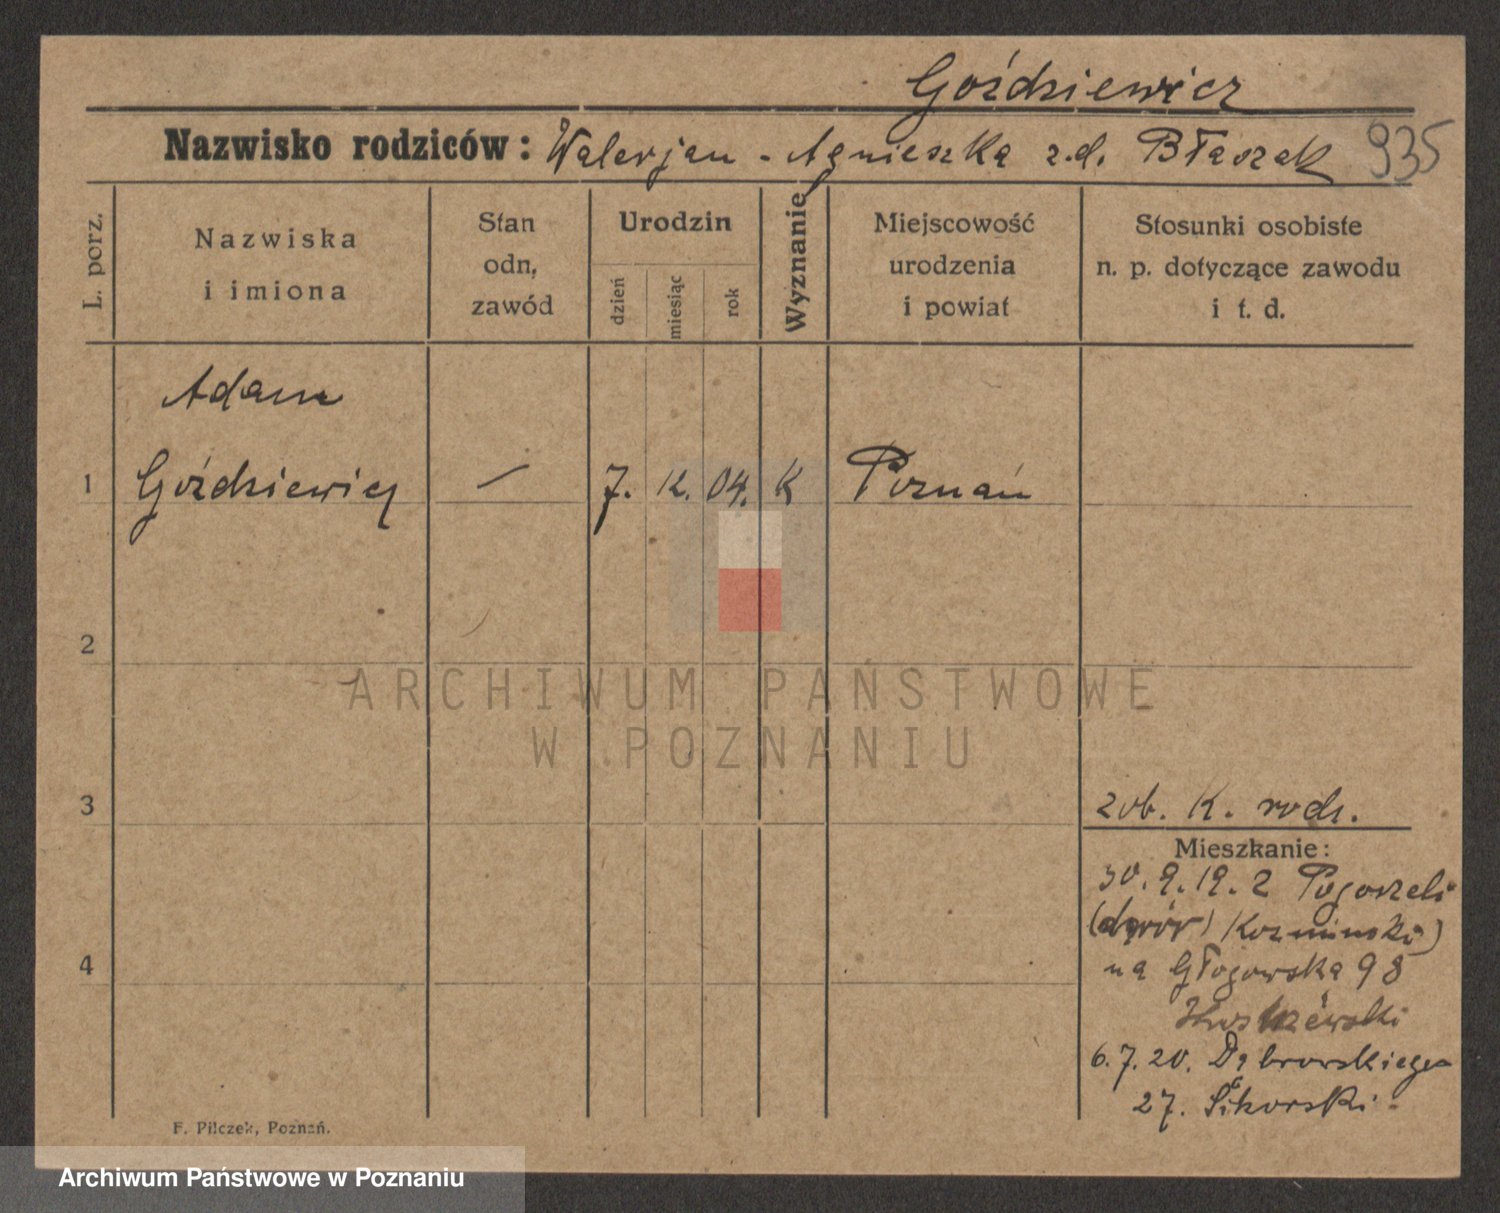 Goździewicz
Nazwisko rodziców: Walerjan - Agnieszka z.d. Błaszak 935
L. porz.
Nazwiska
i imiona
Stan
odn,
zawód
Urodzin
dzień
miesiąc
rok
Wyznanie
Miejscowość
urodzenia
i powiat
Stosunki osobiste
n. p. dotyczące zawodu
i t. d.
Adam
1 Goździewicz — 7. 12. 04. K Poznań
2
ARCHIWUM PAŃSTWOWE
W POZNANIU
3
zob. K. rodz.
Mieszkanie:
30.9.19. z Pogorzeli
(dwór) Kozminski)
4
na Głogowska 98
6.7.20. Dąbrowskiego
27. Sikorski.
F. Pilczek, Poznań.
Archiwum Państwowe w Poznaniu